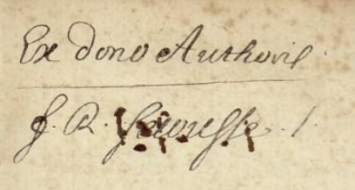 Ex dono Authoris
J. R.